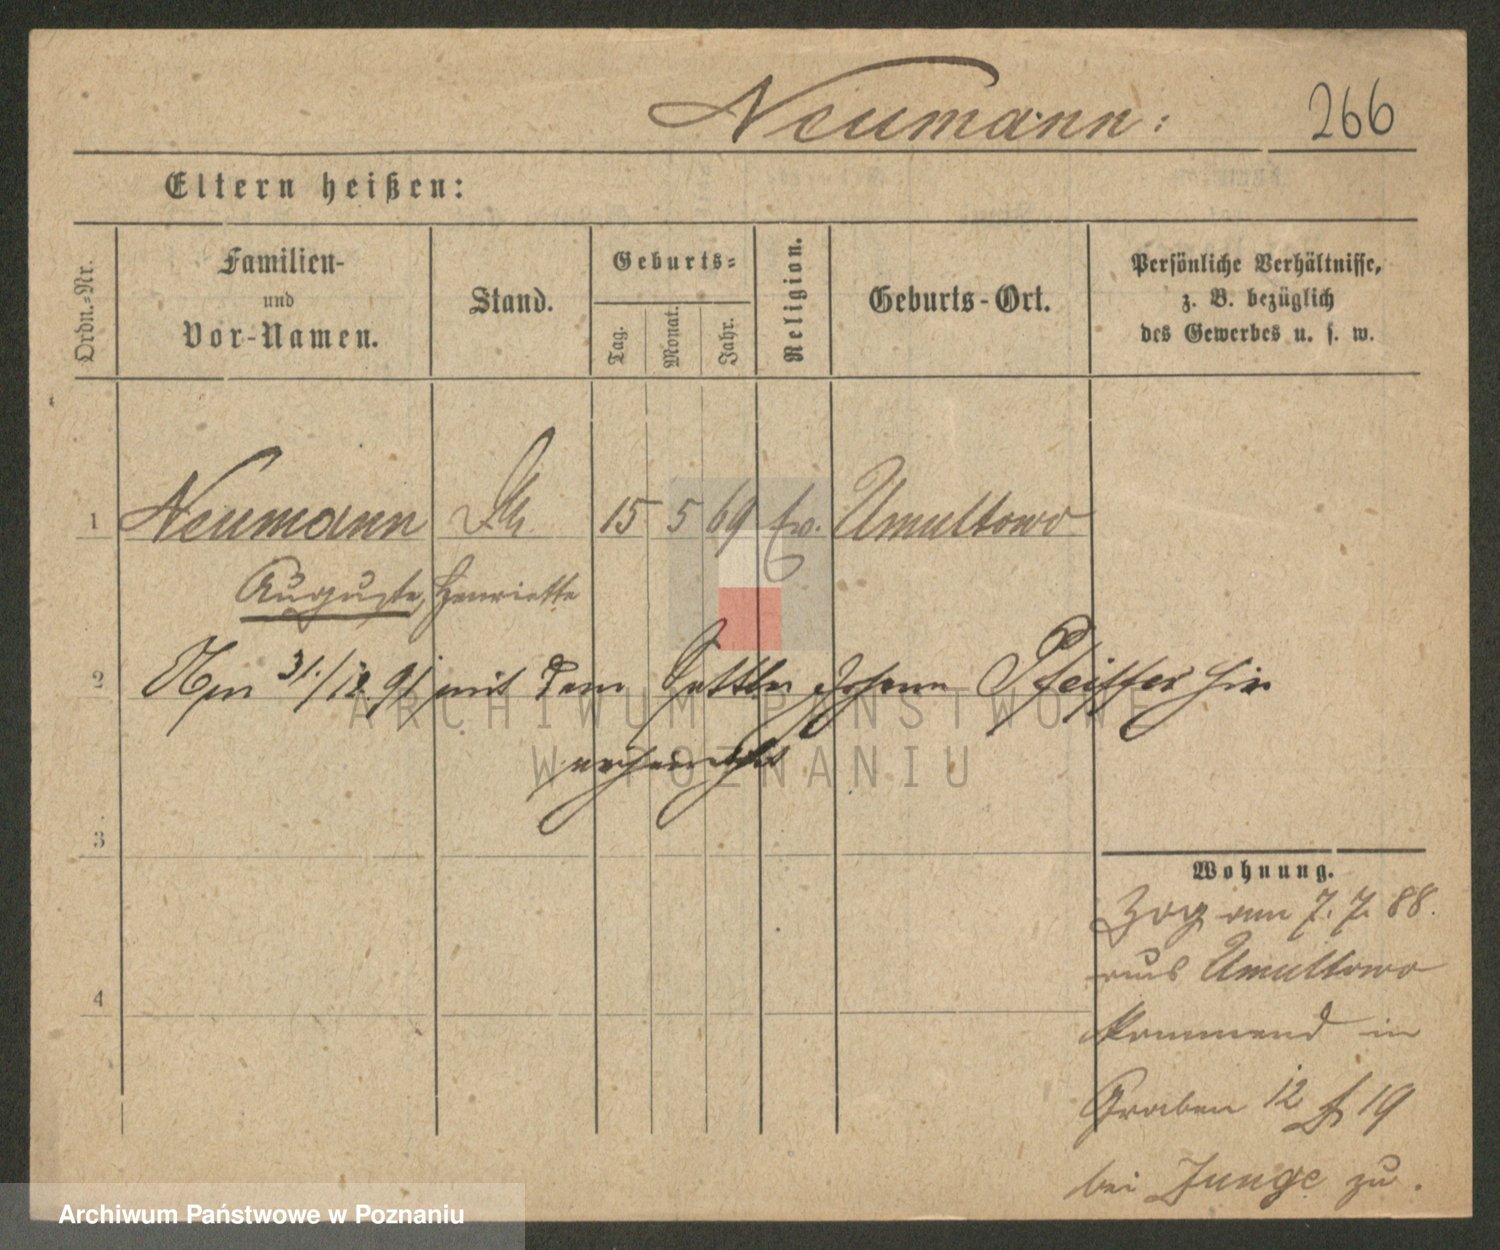 Neumann: 266
Eltern heißen:
Ordn.=Nr.
Familien-
und
Vor-Namen.
Stand.
Geburts=
Tag.
Monat.
Jahr.
Religion.
Geburts-Ort.
Persönliche Verhältnisse,
z. B. bezüglich
des Gewerbes u. s. w.
1 Neumann 15 5 69 Ev. Umultowo
Auguste, Henriette
2 Am 31./12. 91 mit dem Sattler Johann Pfeiffer hier
verheirathet
3
4
Wohnung.
Zog am 7. 7. 88.
aus Umultowo
kommend in
Graben 12 19
bei Junge zu.
ARCHIWUM PAŃSTWOWE
W POZNANIU
Archiwum Państwowe w Poznaniu